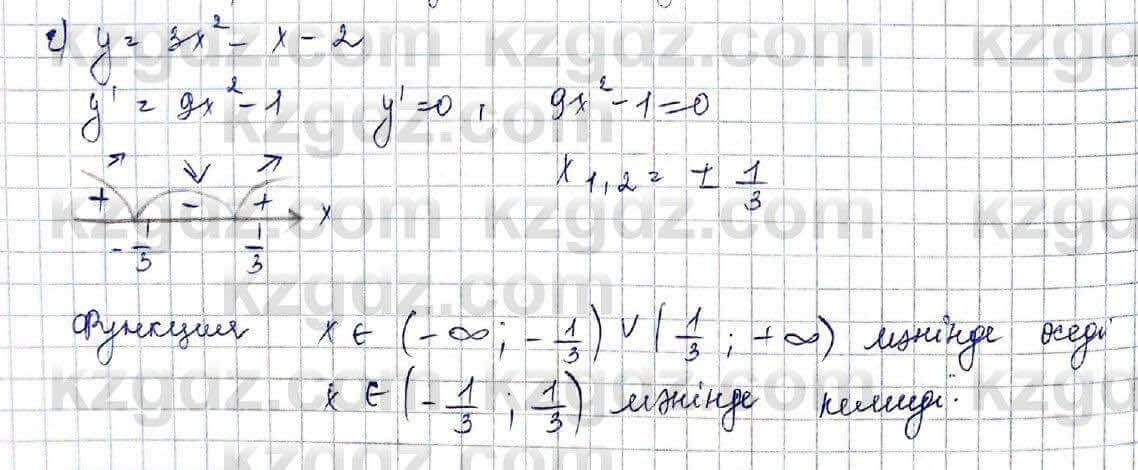 г) y = 3x² - x - 2
y' = 9x² - 1 y' = 0, 9x² - 1 = 0
x₁,₂ = ± 1/3
+ - + x
-1/3 1/3
Функция x ∈ (-∞; -1/3) ∪ (1/3; +∞) мәнінде өседі
x ∈ (-1/3; 1/3) мәнінде кемиді.
kzgdz.com